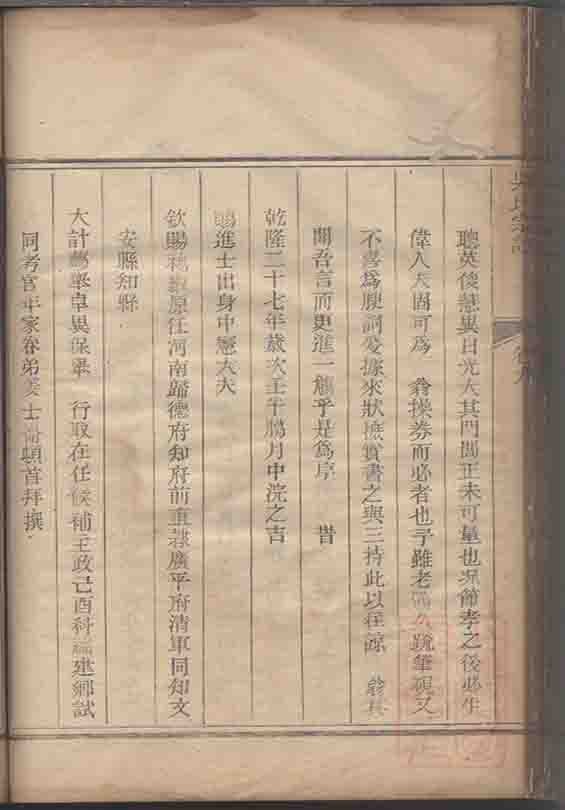 聰英俊慧異日光大其門閭正未可量也况節孝之後必生
偉人夫固可爲 翁操券而必者也予雖老 久 筆硯又
不喜爲諛詞爰據來狀撫實書之與三持此以往諒 翁其
聞吾言而更進一觴乎是爲序 旹
乾隆二十七年歲次壬午臈月中浣之吉
賜進士出身中憲大夫
欽賜 原任河南歸德府知府前直隸廣平府清軍同知文
安縣知縣
大計 舉卓異保舉 行取在任候補主政己酉科福建鄉試
同考官年家眷弟 士 頓首拜撰
氏宗